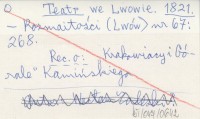 Teatr we Lwowie. 1821.
– Rozmaitości (Lwów) nr 67:
268.
Rec. o: Krakowiacy i Gó-
rale" Kamińskiego